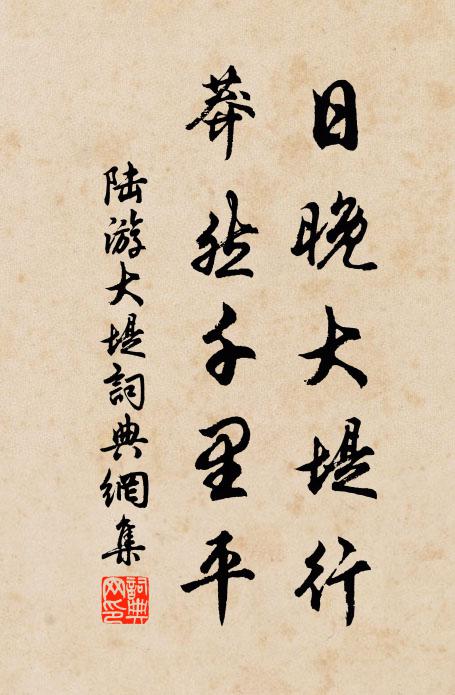 日晚大堤行
莽然千里平
陆游大堤詞典網集
詞典
网印